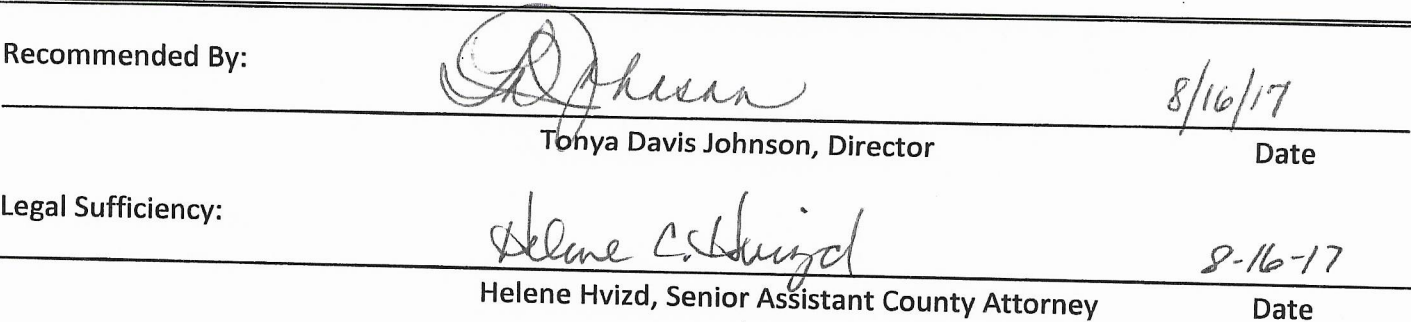 Recommended By:
TD Johnson 8/16/17
Tonya Davis Johnson, Director Date
Legal Sufficiency:
Helene C. Hvizd 8-16-17
Helene Hvizd, Senior Assistant County Attorney Date